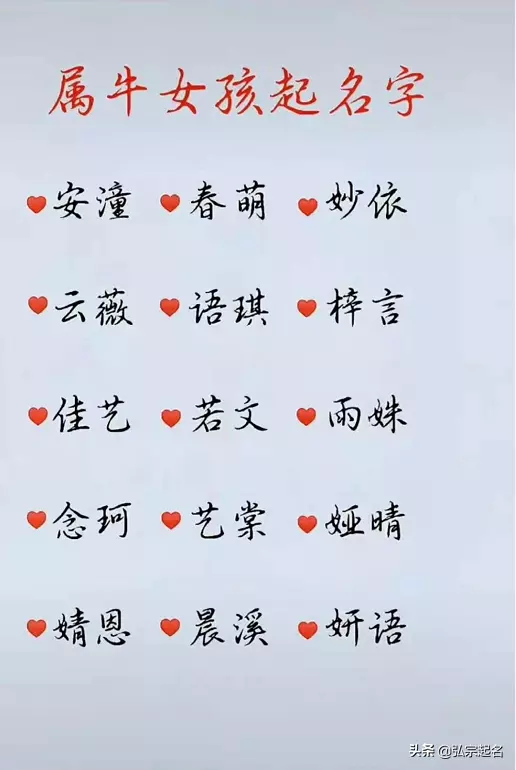 属牛女孩起名字
安潼 春萌 妙依
云薇 语琪 梓言
佳艺 若文 雨姝
念珂 艺棠 娅晴
婧恩 晨溪 妍语
头条 @弘宗起名